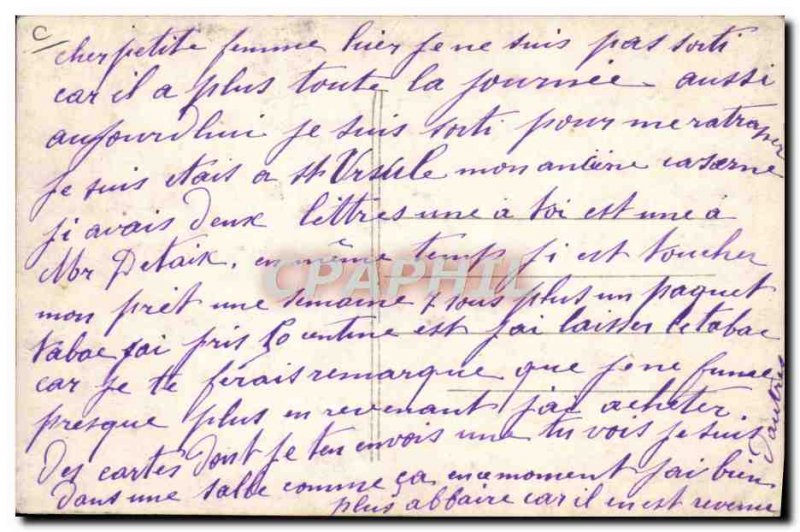 C/
cher petite femme hier je ne suis pas sorti
car il a plus toute la journée aussi
aujourdhui je suis sorti pour me ratraper
je suis etais a St Ursule mon anciene caserne
ji avais deux lettres une a toi est une à
Mr Detaix, en même temps ji est toucher
mon prêt une semaine 7 sous plus un paquet
tabac jai pris 50 centime est jai laisser le tabac
car je te ferais remarque que je ne fume
presque plus en revenant jai acheter
Des cartes dont je ten envois une tu vois je suis
Dans une salle comme ça en ce moment jai bien
plus abbaire car il en est revenu
d'autres
CPAPHIL